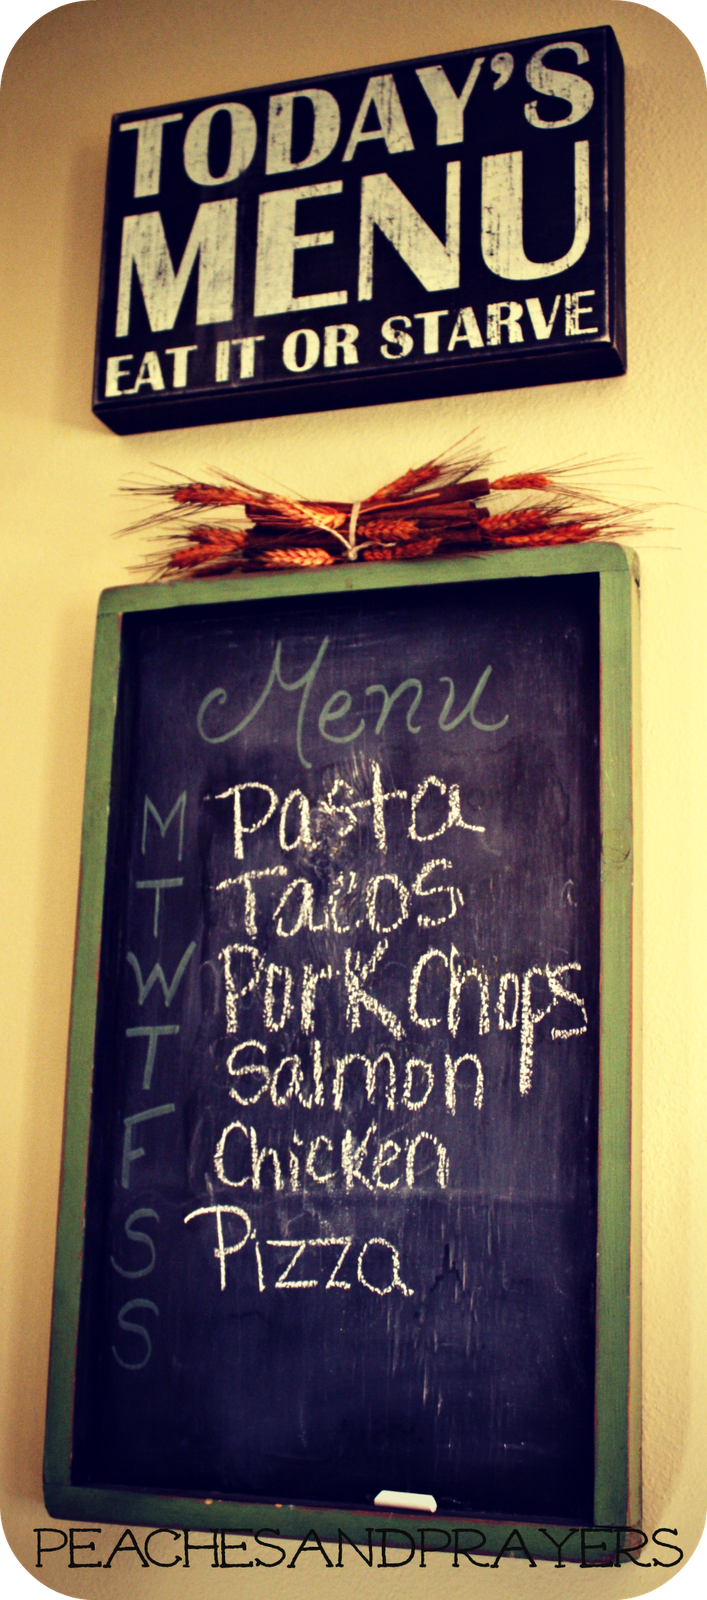 TODAY'S
MENU
EAT IT OR STARVE
Menu
M Pasta
T Tacos
W Pork Chops
T Salmon
F Chicken
S Pizza
S
PEACHESANDPRAYERS